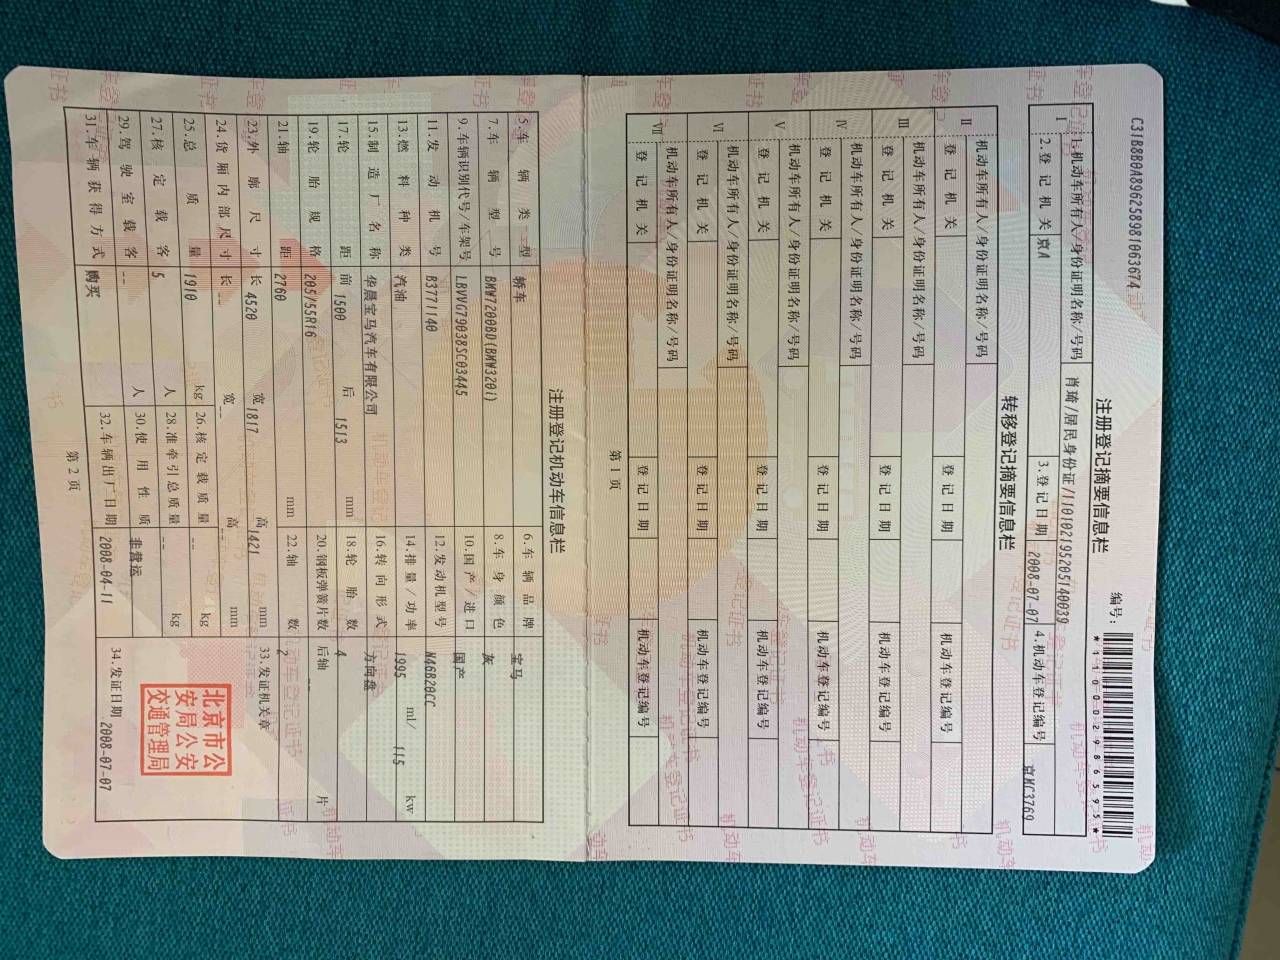 C31B8B0A896258981063674
编号：
*110002986595*
注册登记摘要信息栏
Ⅰ 1.机动车所有人/身份证明名称/号码 肖琦/居民身份证/110102195205140039
2.登记机关 京A 3.登记日期 2008-07-07 4.机动车登记编号 京MC3769
转移登记摘要信息栏
Ⅱ 机动车所有人/身份证明名称/号码
登记机关 登记日期 机动车登记编号
Ⅲ 机动车所有人/身份证明名称/号码
登记机关 登记日期 机动车登记编号
Ⅳ 机动车所有人/身份证明名称/号码
登记机关 登记日期 机动车登记编号
Ⅴ 机动车所有人/身份证明名称/号码
登记机关 登记日期 机动车登记编号
Ⅵ 机动车所有人/身份证明名称/号码
登记机关 登记日期 机动车登记编号
Ⅶ 机动车所有人/身份证明名称/号码
登记机关 登记日期 机动车登记编号
第1页
注册登记机动车信息栏
5.车辆类型 轿车 6.车辆品牌 宝马
7.车辆型号 BMW7200BD(BMW320i) 8.车身颜色 灰
9.车辆识别代号/车架号 LBVVG79038SC03445 10.国产/进口 国产
11.发动机号 B3771140 12.发动机型号 N46B20CC
13.燃料种类 汽油 14.排量/功率 1995 ml/ 115 kw
15.制造厂名称 华晨宝马汽车有限公司 16.转向形式 方向盘
17.轮距 前 1500 后 1513 mm 18.轮胎数 4
19.轮胎规格 205/55R16 20.钢板弹簧片数 后轴 -- 片
21.轴距 2760 mm 22.轴数 2
23.外廓尺寸 长 4520 宽 1817 高 1421 mm 33.发证机关章
24.货厢内部尺寸 长 -- 宽 -- 高 -- mm
25.总质量 1910 kg 26.核定载质量 -- kg
27.核定载客 5 人 28.准牵引总质量 -- kg
29.驾驶室载客 -- 人 30.使用性质 非营运
31.车辆获得方式 购买 32.车辆出厂日期 2008-04-11 34.发证日期 2008-07-07
北京市公
安局公安
交通管理局
第2页